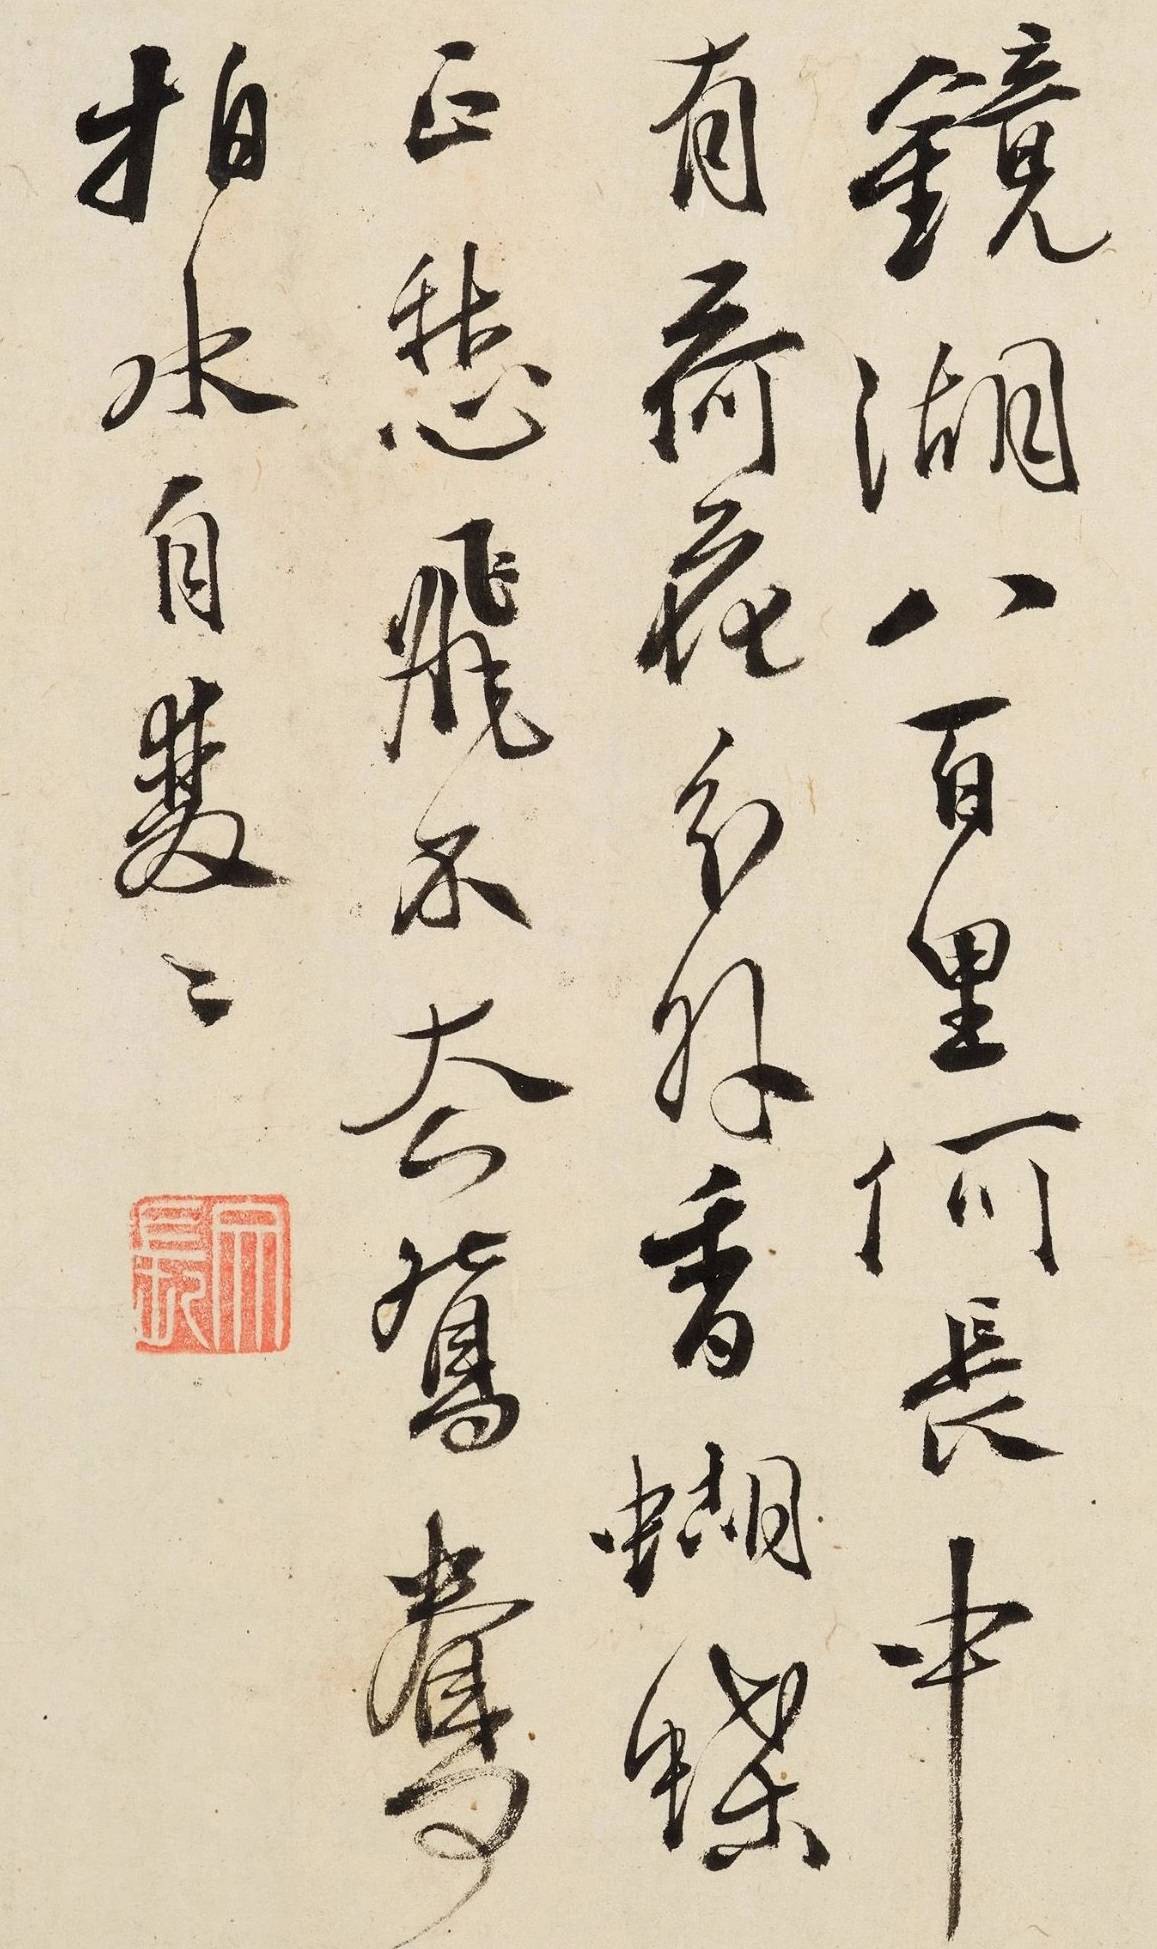 鏡湖八百里何長中
有荷花分外香蝴蝶
正愁飛不去鴛鴦
拍水自雙〻